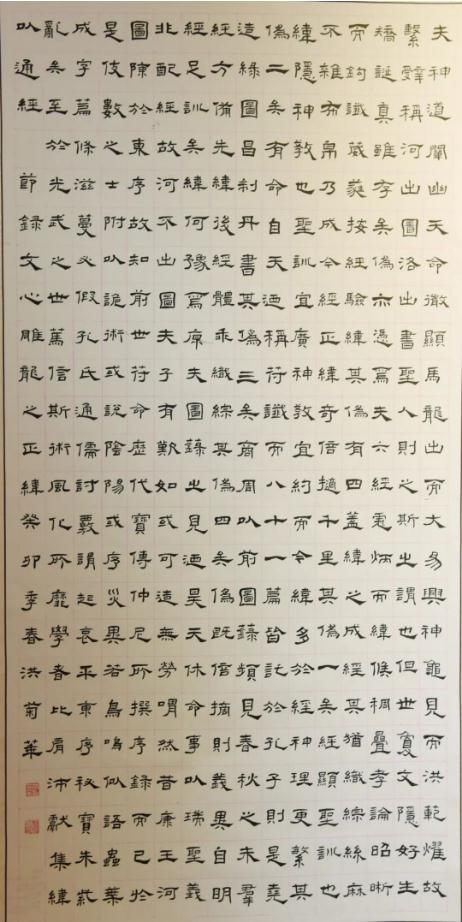 夫神道闡幽天命微顯馬龍出而大易興神龜見而洪範燿故
繫辭稱河出圖洛出書聖人則之斯之謂也但世夐文隱好生
矯誕真雖存矣偽亦憑焉夫六經彪炳而緯候稠疊孝論昭晰
而鉤讖葳蕤按經驗緯其偽有四蓋緯之成經其猶織綜絲麻
不雜布帛乃成今經正緯奇倍擿千里其偽一矣經顯聖訓也
緯隱神教也聖訓宜廣神教宜約而今緯多於經神理更繁其
偽二矣有命自天迺稱符讖而八十一篇皆託於孔子則是堯
造綠圖昌制丹書其偽三矣商周以前圖籙頻見春秋之末羣
經方備先緯後經體乖織綜其偽四矣偽既倍摘則義異自明
經足訓矣緯何豫焉原夫圖籙之見迺昊天休命事以瑞聖義
非配經故河不出圖夫子有歎如或可造無勞喟然昔康王河
圖陳於東序故知前世符命歷代寶傳仲尼所撰序錄而已於
是伎數之士附以詭術或說陰陽或序災異若鳥鳴似語蟲葉
成字篇條滋蔓必假孔氏通儒討覈謂起哀平東序秘寶朱紫
亂矣至於光武之世篤信斯術風化所靡學者比肩沛獻集緯
以通經 節錄文心雕龍之正緯癸卯季春洪菊華